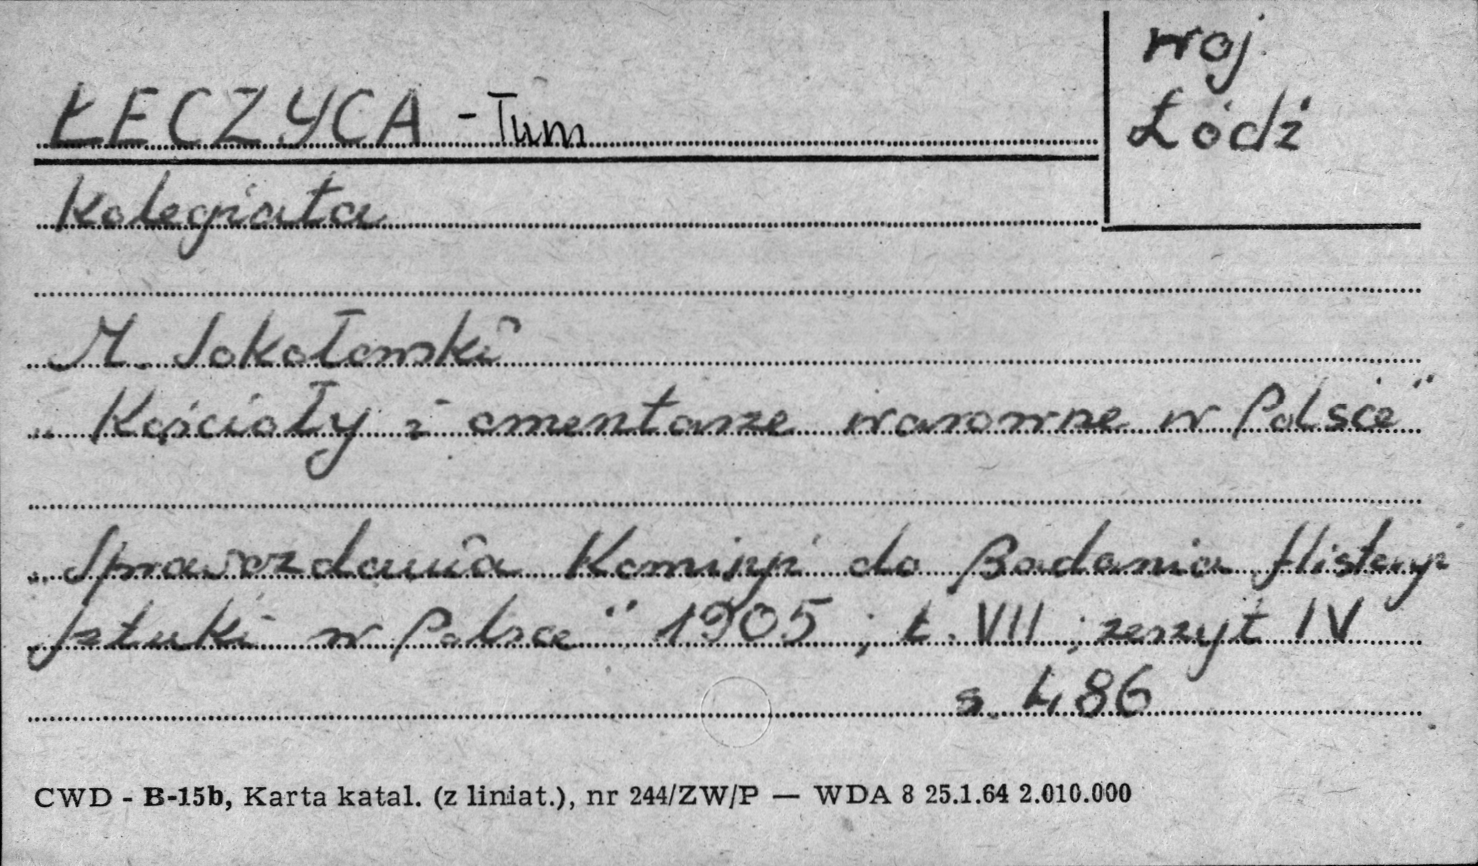 woj.
Łódź
ŁECZYCA - Tum
Kolegiata
M. Sokołowski
„Kościoły i cmentarze warowne w Polsce"
„Sprawozdania Komisyi do Badania Historyi
Sztuki w Polsce" 1905; t. VII; zeszyt IV
s. 486
CWD - B-15b, Karta katal. (z liniat.), nr 244/ZW/P — WDA 8 25.1.64 2.010.000